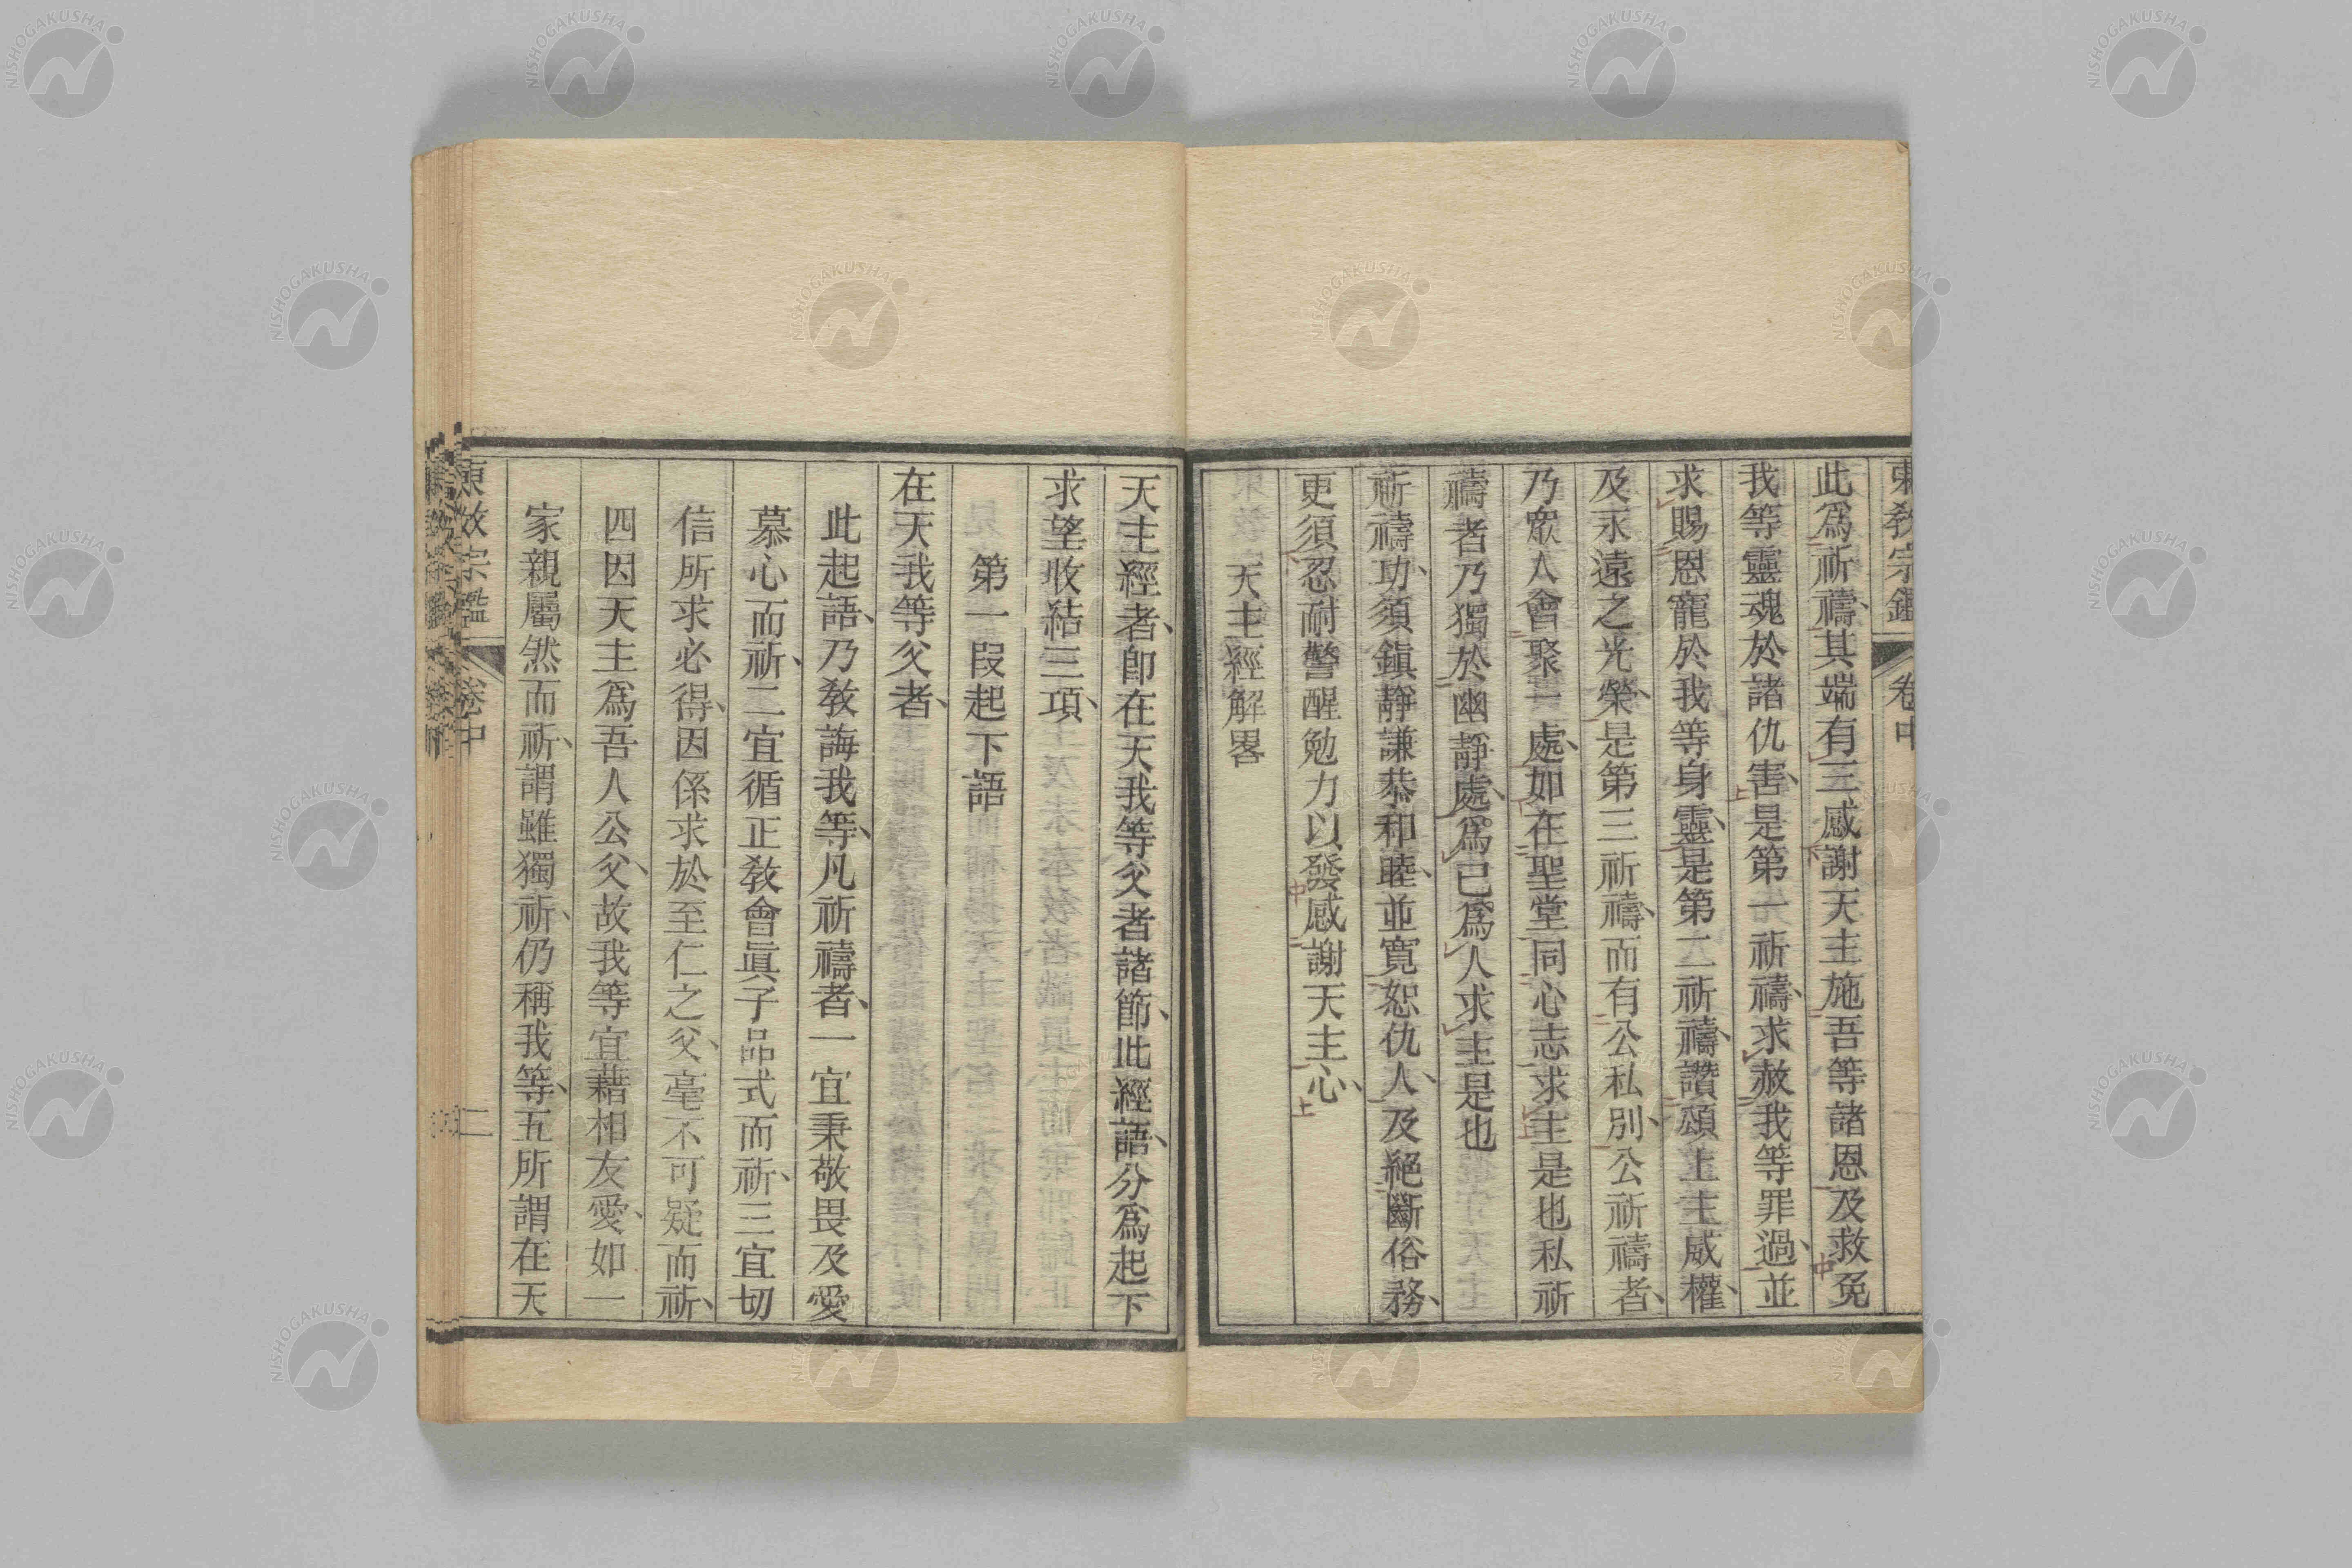 東教宗鑑 卷中
此爲祈禱、其端有三感謝天主施吾等諸恩及救免
我等靈魂於諸仇害、是第一祈禱、求赦我等罪過、並
求賜恩寵於我等身靈、是第二祈禱、讚頌上主威權、
及永遠之光榮、是第三祈禱、而有公私別、公祈禱者、
乃衆人會聚一處、如在聖堂同心志求主是也私祈
禱者乃獨於幽靜處、爲己爲人求主是也
祈禱功、須鎭靜謙恭和睦、並寬恕仇人、及絕斷俗務、
更須忍耐警醒勉力以發感謝天主心、
天主經解畧
天主經者、卽在天我等父者諸節、此經語、分爲起下
求望收結三項、
第一段起下語
在天我等父者、
此起語、乃敎誨我等、凡祈禱者、一宜秉敬畏及愛
慕心而祈、二宜循正敎會眞子品式而祈、三宜切
信所求必得、因係求於至仁之父、毫不可疑而祈、
四因天主爲吾人公父、故我等宜藉相友愛、如一
家親屬然而祈、謂雖獨祈、仍稱我等、五所謂在天
東敎宗鑑 卷中 二
NISHOGAKUSHA